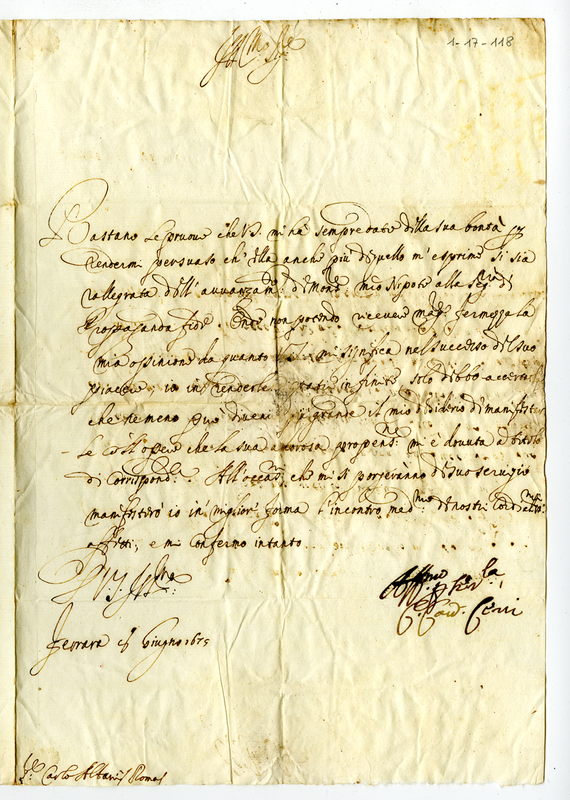 Ill.mo Sig.re
1-17-118
Bastano le pruove che V.S. mi ha sempre date della sua bontà p
rendermi persuaso ch' ella anche più di quello m'esprime si sia
rallegrata dell' avvanzam.to di Mons.r mio Nipote alla Seg.ria di
Propaganda fide. Onde non potendo ricevere mag.r fermezza la
mia opinione da quanto mi significa nel successo del suo
piacere, io in renderle infinite solo debbo
che nemeno può grande il mio desiderio di manifestar
le coll' opere che la sua amorosa propens.ne m'è dovuta a titolo
di Corrispond.za. All' occas.ni che mi si porgeranno di suo servigio
manifesterò io in miglior forma l'incontro med.mo de nostri
affetti, e mi confermo intanto.
Di V.S. Ill.ma
Aff.mo per
Il Card. Cerri
Ferrara Giugno 1675
S.r Carlo Albani Roma